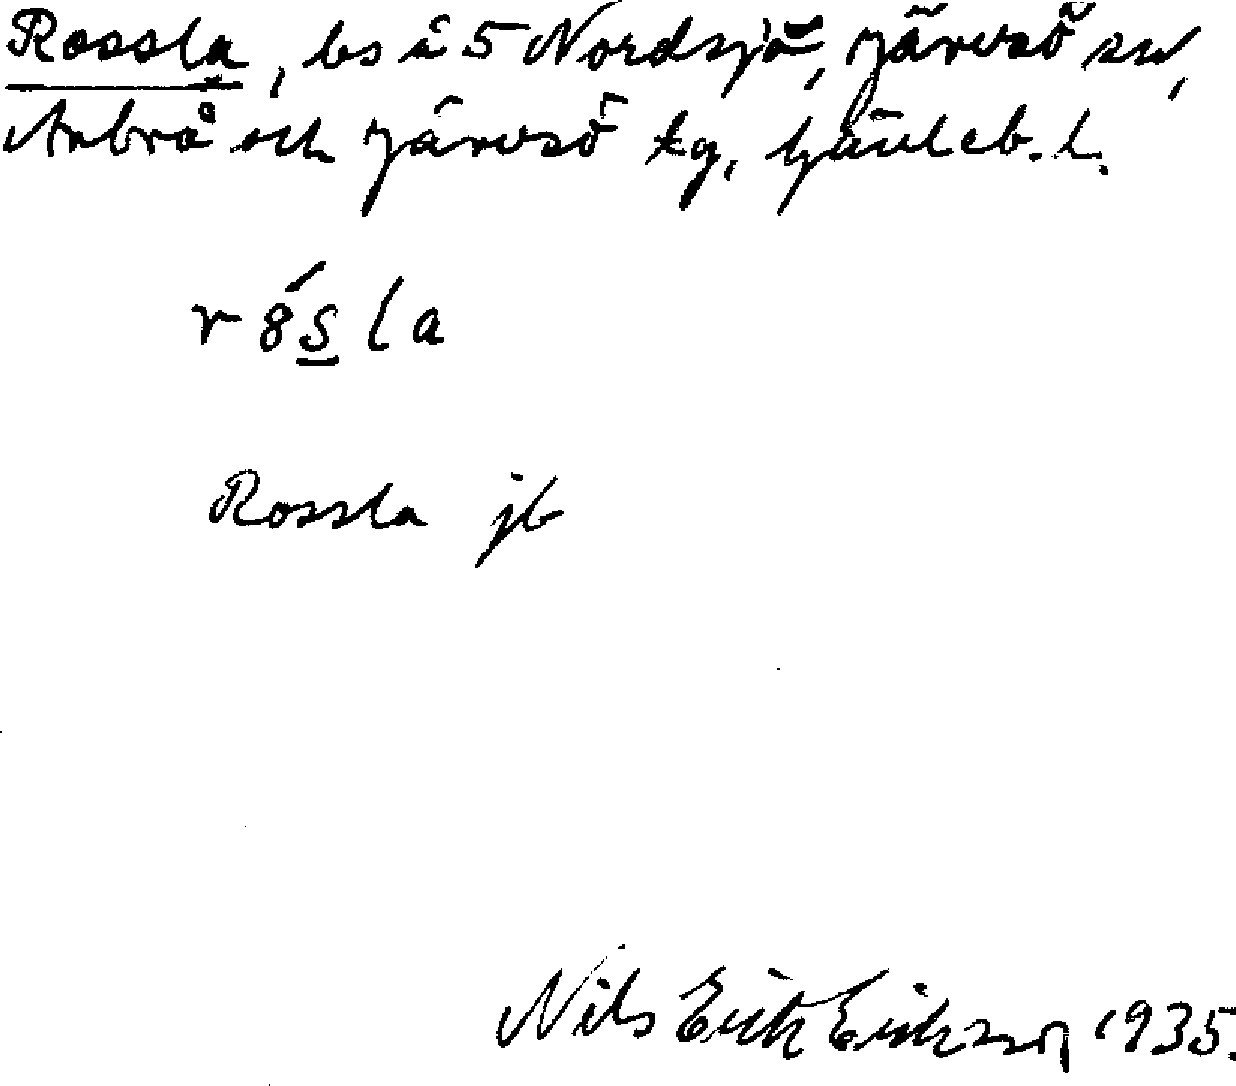 Rossla, bs å 5 Nordsjö, Järvsö sn,
Arbrå och Järvsö tg, Gävleb. l.
r8́s̲la
Rossla jb
Nils Erik Erikson 1935.